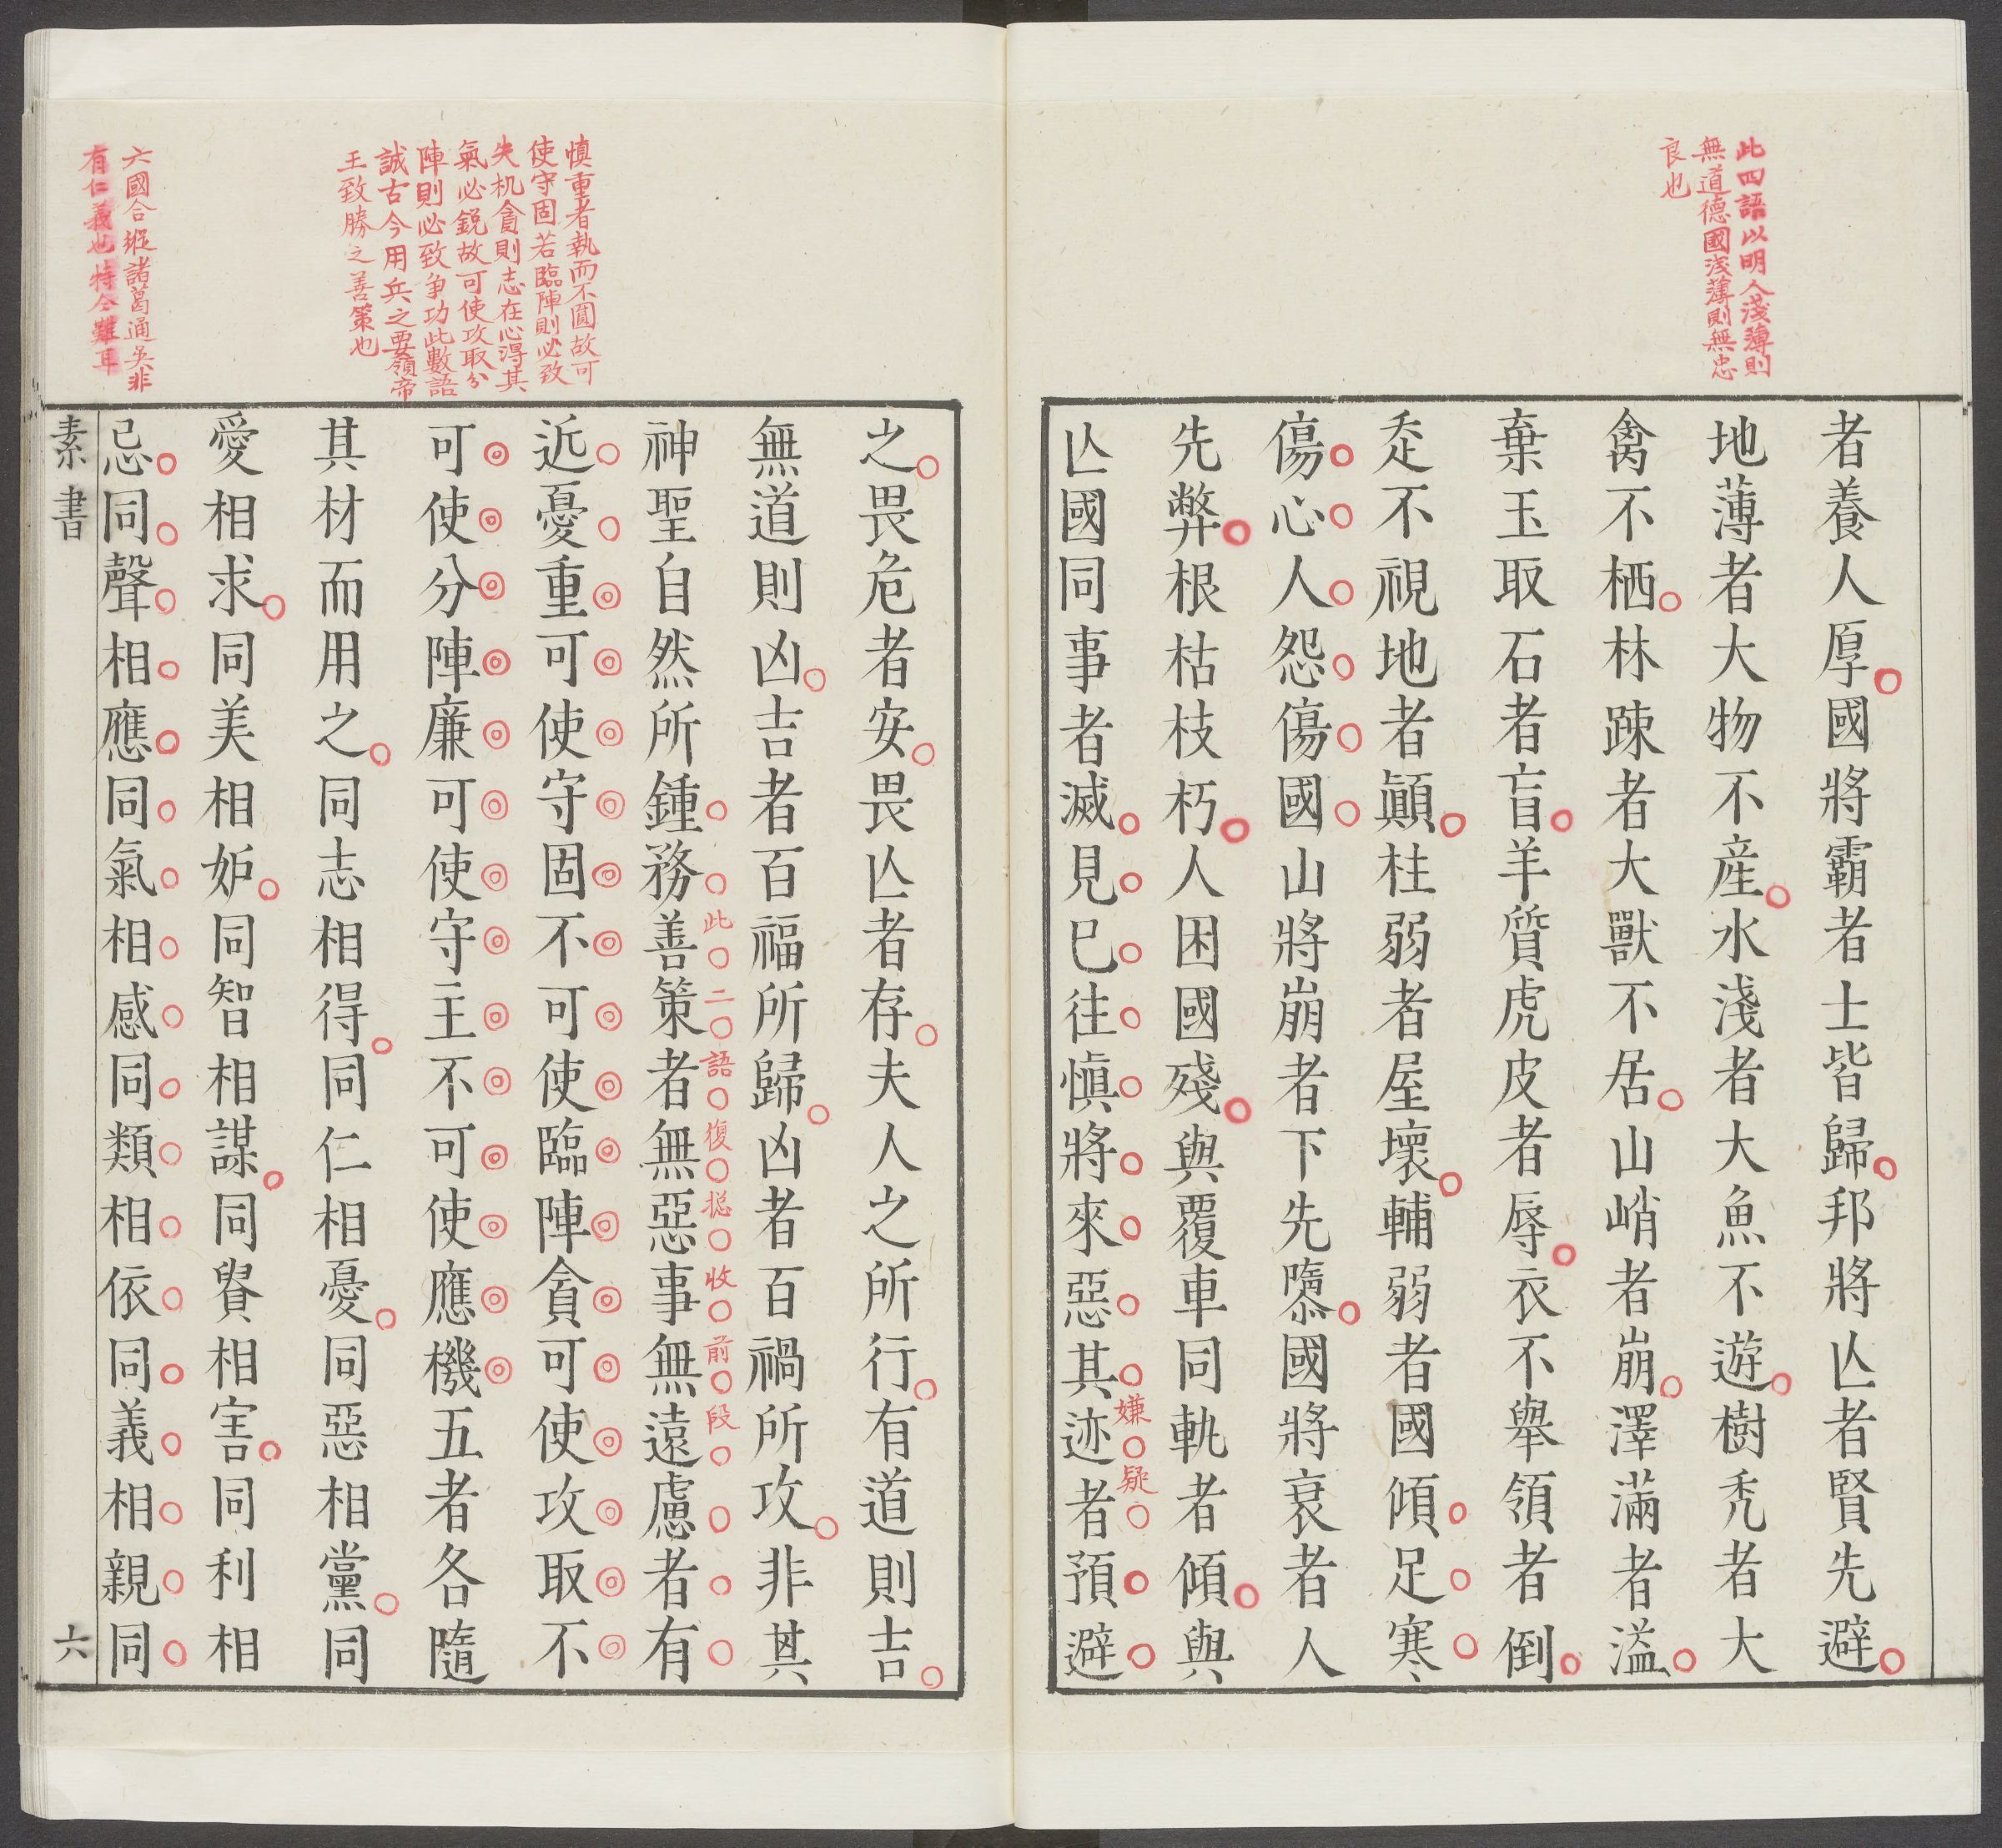 此四語以明人淺薄則
無道德國淺薄則無忠
良也
者養人厚國將霸者士皆歸邦將亾者賢先避
地薄者大物不產水淺者大魚不遊樹禿者大
禽不栖林踈者大獸不居山峭者崩澤滿者溢
棄玉取石者盲羊質虎皮者辱衣不舉領者倒
赱不視地者顚柱弱者屋壞輔弱者國傾足寒
傷心人怨傷國山將崩者下先隳國將衰者人
先弊根枯枝朽人困國殘與覆車同軌者傾與
亾國同事者滅見已往愼將來惡其迹者預避
嫌疑
慎重者執而不圓故可
使守固若臨陣則必致
失机貪則志在心得其
氣必銳故可使攻取分
陣則必致爭功此數語
誠古今用兵之要領帝
王致勝之善策也
之畏危者安畏亾者存夫人之所行有道則吉
無道則凶吉者百福所歸凶者百禍所攻非其
神聖自然所鍾務善策者無惡事無遠慮者有
此二語復總收前段
近憂重可使守固不可使臨陣貪可使攻取不
可使分陣廉可使守主不可使應機五者各隨
其材而用之同志相得同仁相憂同惡相黨同
愛相求同美相妒同智相謀同貴相害同利相
六國合縱諸葛通吳非
有仁義也特合難耳
忌同聲相應同氣相感同類相依同義相親同
素書
六